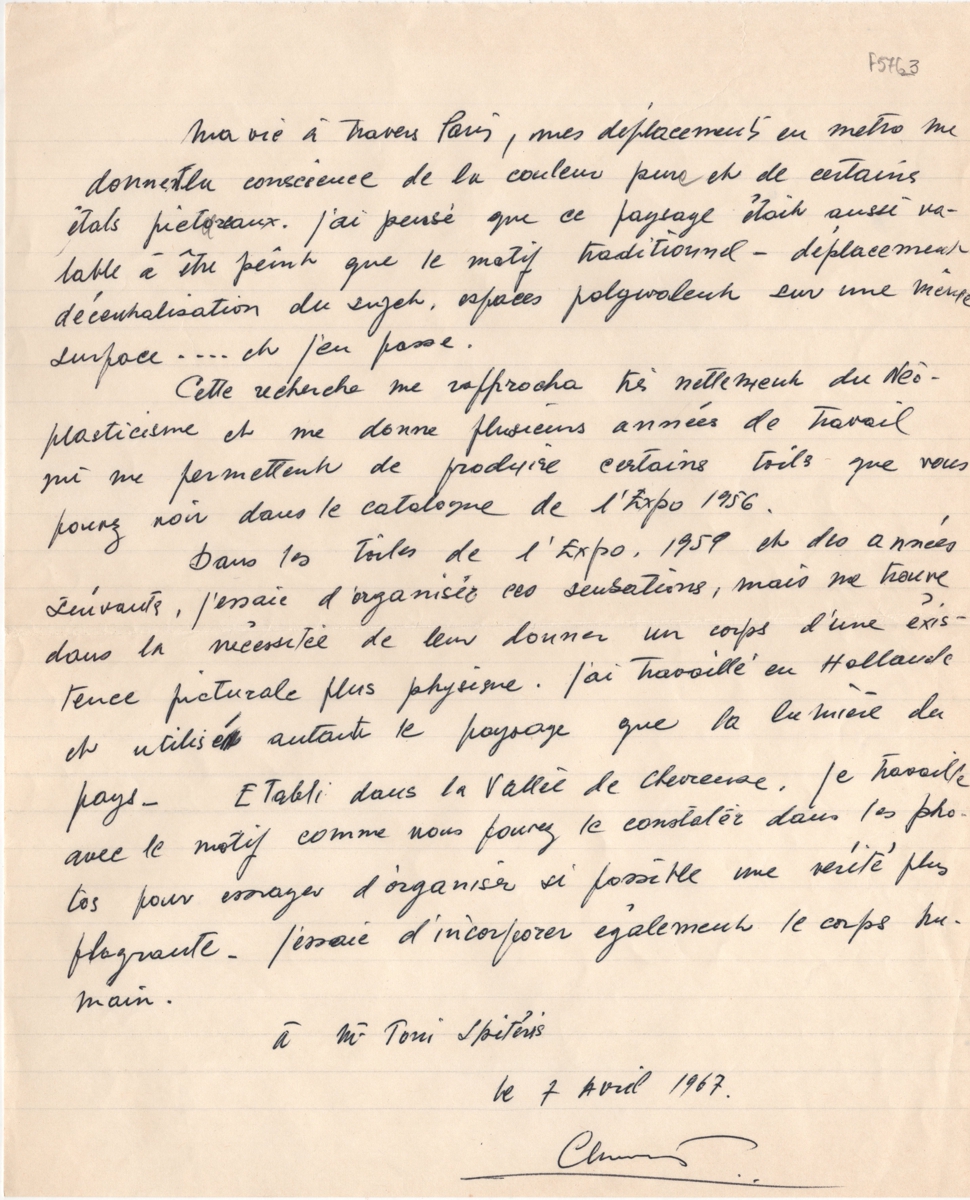 F5763
Ma vie à travers Paris, mes déplacements en metro me
donnent la conscience de la couleur pure et de certains
états pictoreaux. J'ai pensé que ce paysage était aussi va-
lable à être peint que le motif traditionnel - déplacement
décentralisation du sujet, espaces polyvalent sur une même
surface .... et j'en passe.
Cette recherche me rapprocha très nettement du Néo-
plasticisme et me donne plusieurs années de travail
qui me permettent de produire certains toiles que vous
pouvez voir dans le catalogue de l'Expo 1956.
Dans les toiles de l'Expo. 1959 et des années
suivants, j'essaie d'organiser ces sensations, mais me trouve
dans la nécessitée de leur donner un corps d'une éxis-
tence picturale plus physique. J'ai travaillé en Hollande
et utilisé autant le paysage que la lumière du
pays - Etabli dans la Vallée de Chevreuse, je travaille
avec le motif comme vous pouvez le constater dans les pho-
tos pour essayer d'organiser si possible une vérité plus
flagrante - J'essaie d'incorporer également le corps hu-
main.
à Mr Toni Spiteris
le 7 Avril 1967.